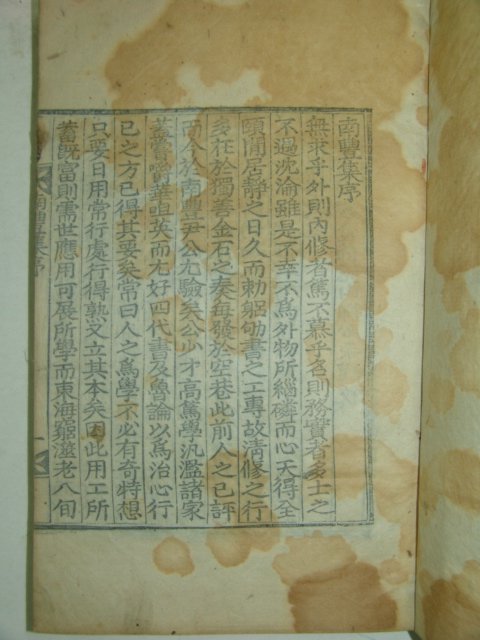 南豐集序
無求乎外則內修者篤不慕乎名則務實者多士之
不遇沈淪雖是不幸不爲外物所緇磷而心天得全
頤閒居靜之日久而勅躬劬書之工專故淸修之行
多在於獨善金石之奏每發於空巷此前人之已評
而今於南豐尹公尤驗矣公少才高篤學汎濫諸家
蓋嘗嚼華咀英而尤好四代書及魯論以爲治心行
己之方已得其要矣常曰人之爲學不必有奇特想
只要日用常行處行得熟又立其本矣因此用工所
蓄旣富則需世應用可展所學而東海窮澨老八旬
南豐集序